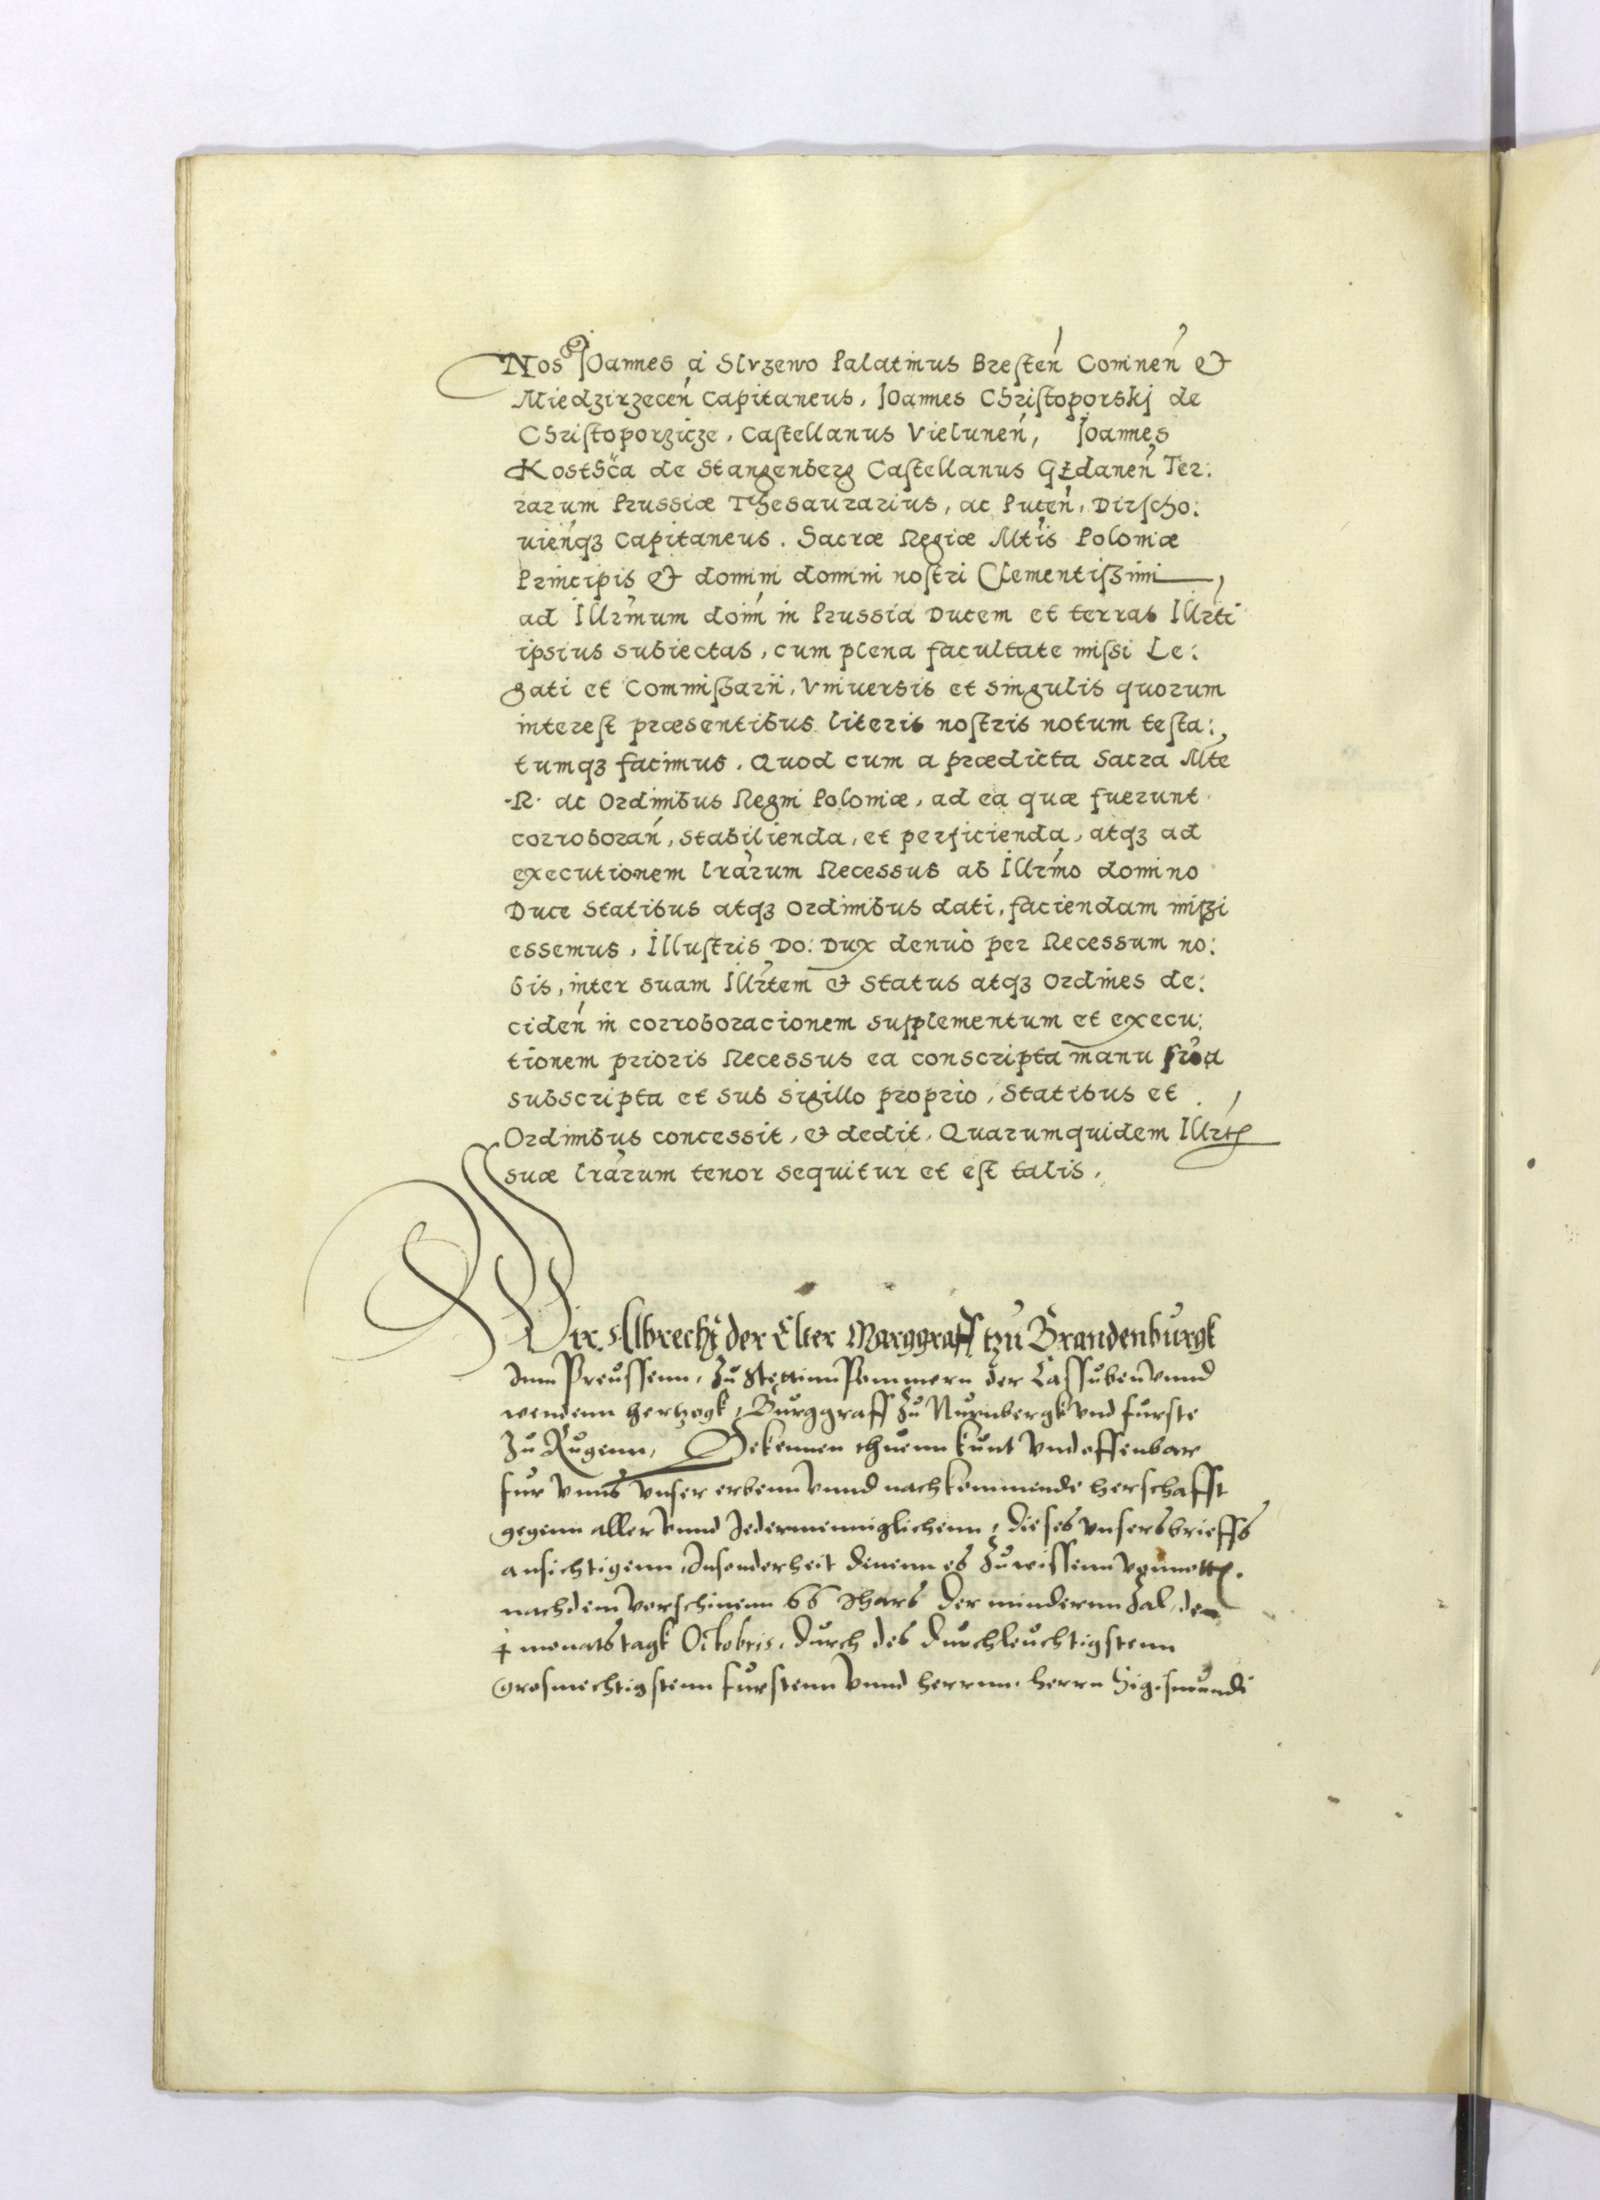 Nos Joannes à Slvzewo Palatinus Bresteñ Comineñ et
Miedzirzeceñ Capitaneus, Joannes Christoporskj de
Christoporziczе, Castellanus Vieluneñ, Joannes
Kostsca de Stangenberg Castellanus Gedaneñ Ter:
rarum Prussiæ Thesaurarius, ac Puceñ, Dirscho:
uieñqȝ Capitaneus. Sacræ Regiæ Mtis Poloniæ
Principis et domini domini nostri Clementissimi
ad Illrmum doim in Prussia Ducem et terras Illrti
ipsius subiectas, cum plena facultate missi Le:
gati et Commissarii, Vniuersis et singulis quorum
interest præsentibus literis nostris notum testa:
tumqȝ facimus. Quod cum a prædicta Sacra Mte
·R· ac Ordinibus Regni Poloniæ, ad ea quæ fuerunt
corroborañ, stabilienda, et perficienda, atqȝ ad
executionem lrarum Recessus ab Illrmo domino
Duce Statibus atqȝ Ordinibus dati, faciendam missi
essemus, Illustris Do: Dux denuò per Recessum no:
bis, inter suam Illrtem et Status atqȝ Ordines de:
cideñ in corroboracionem supplementum et execu:
tionem prioris Recessus ea conscripta manu sua
subscripta et sub sigillo proprio, Statibus et
Ordinibus concessit, et dedit, Quarumquidem Illrtis
suæ lrarum tenor sequitur et est talis,
Wir Albrecht der Elter Marggraff tzu Brandenburgk
Inn Preussenn, zu Stettinn Pommern der Cassuben vnnd
wendenn hertzogk, Burggraff zu Nurnbergk vnd furste
zu Rugenn, Bekennen thuenn kunt vnd offenbar
fur vnns vnser erbenn vnnd nachkommende herschafft
gegenn aller vnnd Jedermenniglichenn, dieses vnsers brieffs
ansichtigenn, Insonderheit denenn es zuwissenn vonnotten.
nachdem verschinenn 66 Jhars der mindernn zal, den
4 monatstagk Octobris, durch des durchleuchtigstenn
Grosmechtigstenn furstenn vnnd herrnn, herrn Sigismundi